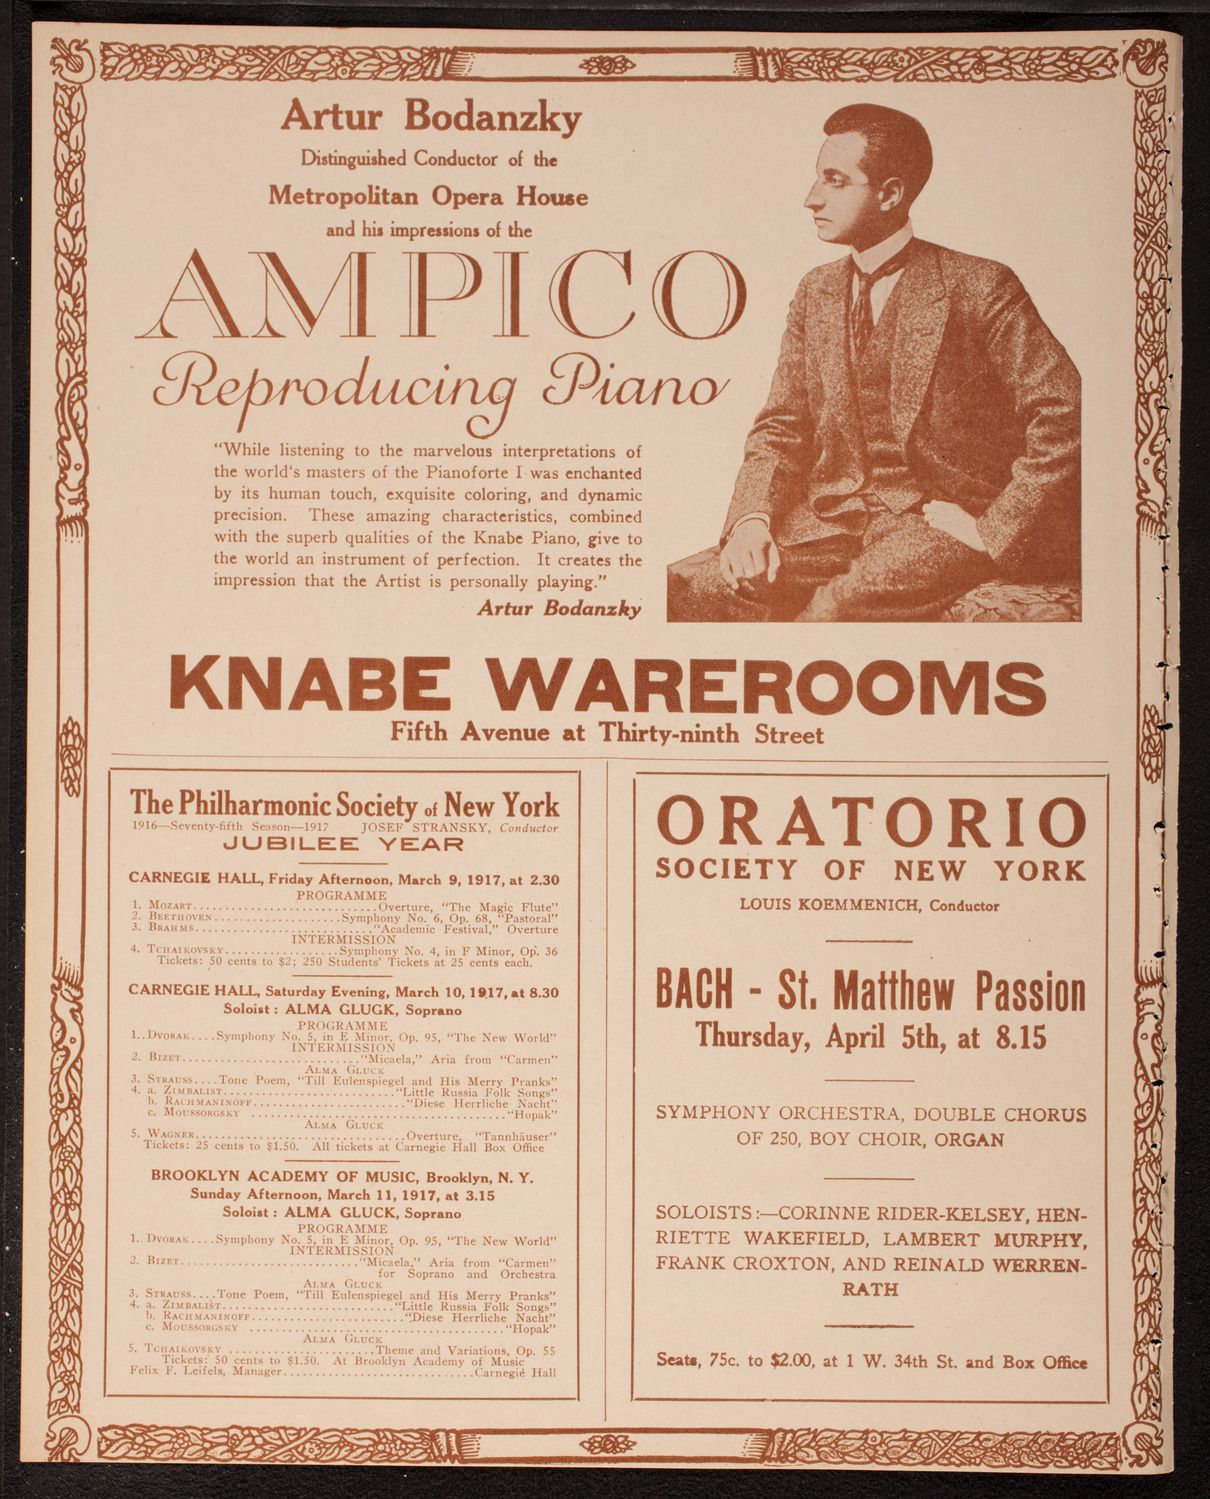 Artur Bodanzky
Distinguished Conductor of the
Metropolitan Opera House
and his impressions of the
AMPICO
Reproducing Piano
“While listening to the marvelous interpretations of
the world‘s masters of the Pianoforte I was enchanted
by its human touch, exquisite coloring, and dynamic
precision. These amazing characteristics, combined
with the superb qualities of the Knabe Piano, give to
the world an instrument of perfection. It creates the
impression that the Artist is personally playing.”
Artur Bodanzky
KNABE WAREROOMS
Fifth Avenue at Thirty-ninth Street
The Philharmonic Society of New York
1916—Seventy-fifth Season—1917 JOSEF STRANSKY, Conductor
JUBILEE YEAR
CARNEGIE HALL, Friday Afternoon, March 9, 1917, at 2.30
PROGRAMME
1. MOZART............................Overture, “The Magic Flute”
2. BEETHOVEN....................Symphony No. 6, Op. 68, “Pastoral”
3. BRAHMS.........................“Academic Festival,” Overture
INTERMISSION
4. TCHAIKOVSKY..................Symphony No. 4, in F Minor, Op. 36
Tickets: 50 cents to $2; 250 Students’ Tickets at 25 cents each.
CARNEGIE HALL, Saturday Evening, March 10, 1917, at 8.30
Soloist : ALMA GLUGK, Soprano
PROGRAMME
1..DVORAK....Symphony No. 5, in E Minor, Op. 95, “The New World”
INTERMISSION
2. BIZET............................“Micaela,” Aria from “Carmen”
ALMA GLUCK
3. STRAUSS....Tone Poem, “Till Eulenspiegel and His Merry Pranks”
4. a. ZIMBALIST...........................“Little Russia Folk Songs”
b. RACHMANINOFF........................“Diese Herrliche Nacht”
c. MOUSSORGSKY ........................................“Hopak”
ALMA GLUCK
5. WAGNER.................................Overture, “Tannhäuser”
Tickets: 25 cents to $1.50. All tickets at Carnegie Hall Box Office
BROOKLYN ACADEMY OF MUSIC, Brooklyn, N. Y.
Sunday Afternoon, March 11, 1917, at 3.15
Soloist : ALMA GLUCK, Soprano
PROGRAMME
1. DVORAK....Symphony No. 5, in E Minor, Op. 95, “The New World”
INTERMISSION
2. BIZET............................“Micaela,” Aria from “Carmen”
for Soprano and Orchestra
ALMA GLUCK
3. STRAUSS....Tone Poem, “Till Eulenspiegel and His Merry Pranks”
4. a. ZIMBALIST...........................“Little Russia Folk Songs”
b. RACHMANINOFF........................“Diese Herrliche Nacht”
c. MOUSSORGSKY ........................................“Hopak”
ALMA GLUCK
5. TCHAIKOVSKY .......................Theme and Variations, Op. 55
Tickets: 50 cents to $1.50. At Brooklyn Academy of Music
Felix F. Leifels, Manager..............................Carnegie Hall
ORATORIO
SOCIETY OF NEW YORK
LOUIS KOEMMENICH, Conductor
BACH - St. Matthew Passion
Thursday, April 5th, at 8.15
SYMPHONY ORCHESTRA, DOUBLE CHORUS
OF 250, BOY CHOIR, ORGAN
SOLOISTS:—CORINNE RIDER-KELSEY, HEN-
RIETTE WAKEFIELD, LAMBERT MURPHY,
FRANK CROXTON, AND REINALD WERREN-
RATH
Seats, 75c. to $2.00, at 1 W. 34th St. and Box Office